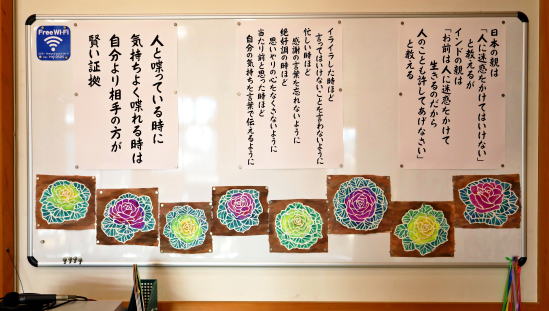 Free Wi-Fi
日本の親は
「人に迷惑をかけてはいけない」
と教えるが
インドの親は
「お前は人に迷惑をかけて
生きるのだから
人のことも許してあげなさい」
と教える
イライラした時ほど
言ってはいけないことを言わないように
忙しい時ほど
感謝の言葉を忘れないように
絶好調の時ほど
思いやりの心をなくさないように
当たり前と思った時ほど
自分の気持ちを言葉で伝えるように
人と喋っている時に
気持ちよく喋れる時は
自分より相手の方が
賢い証拠